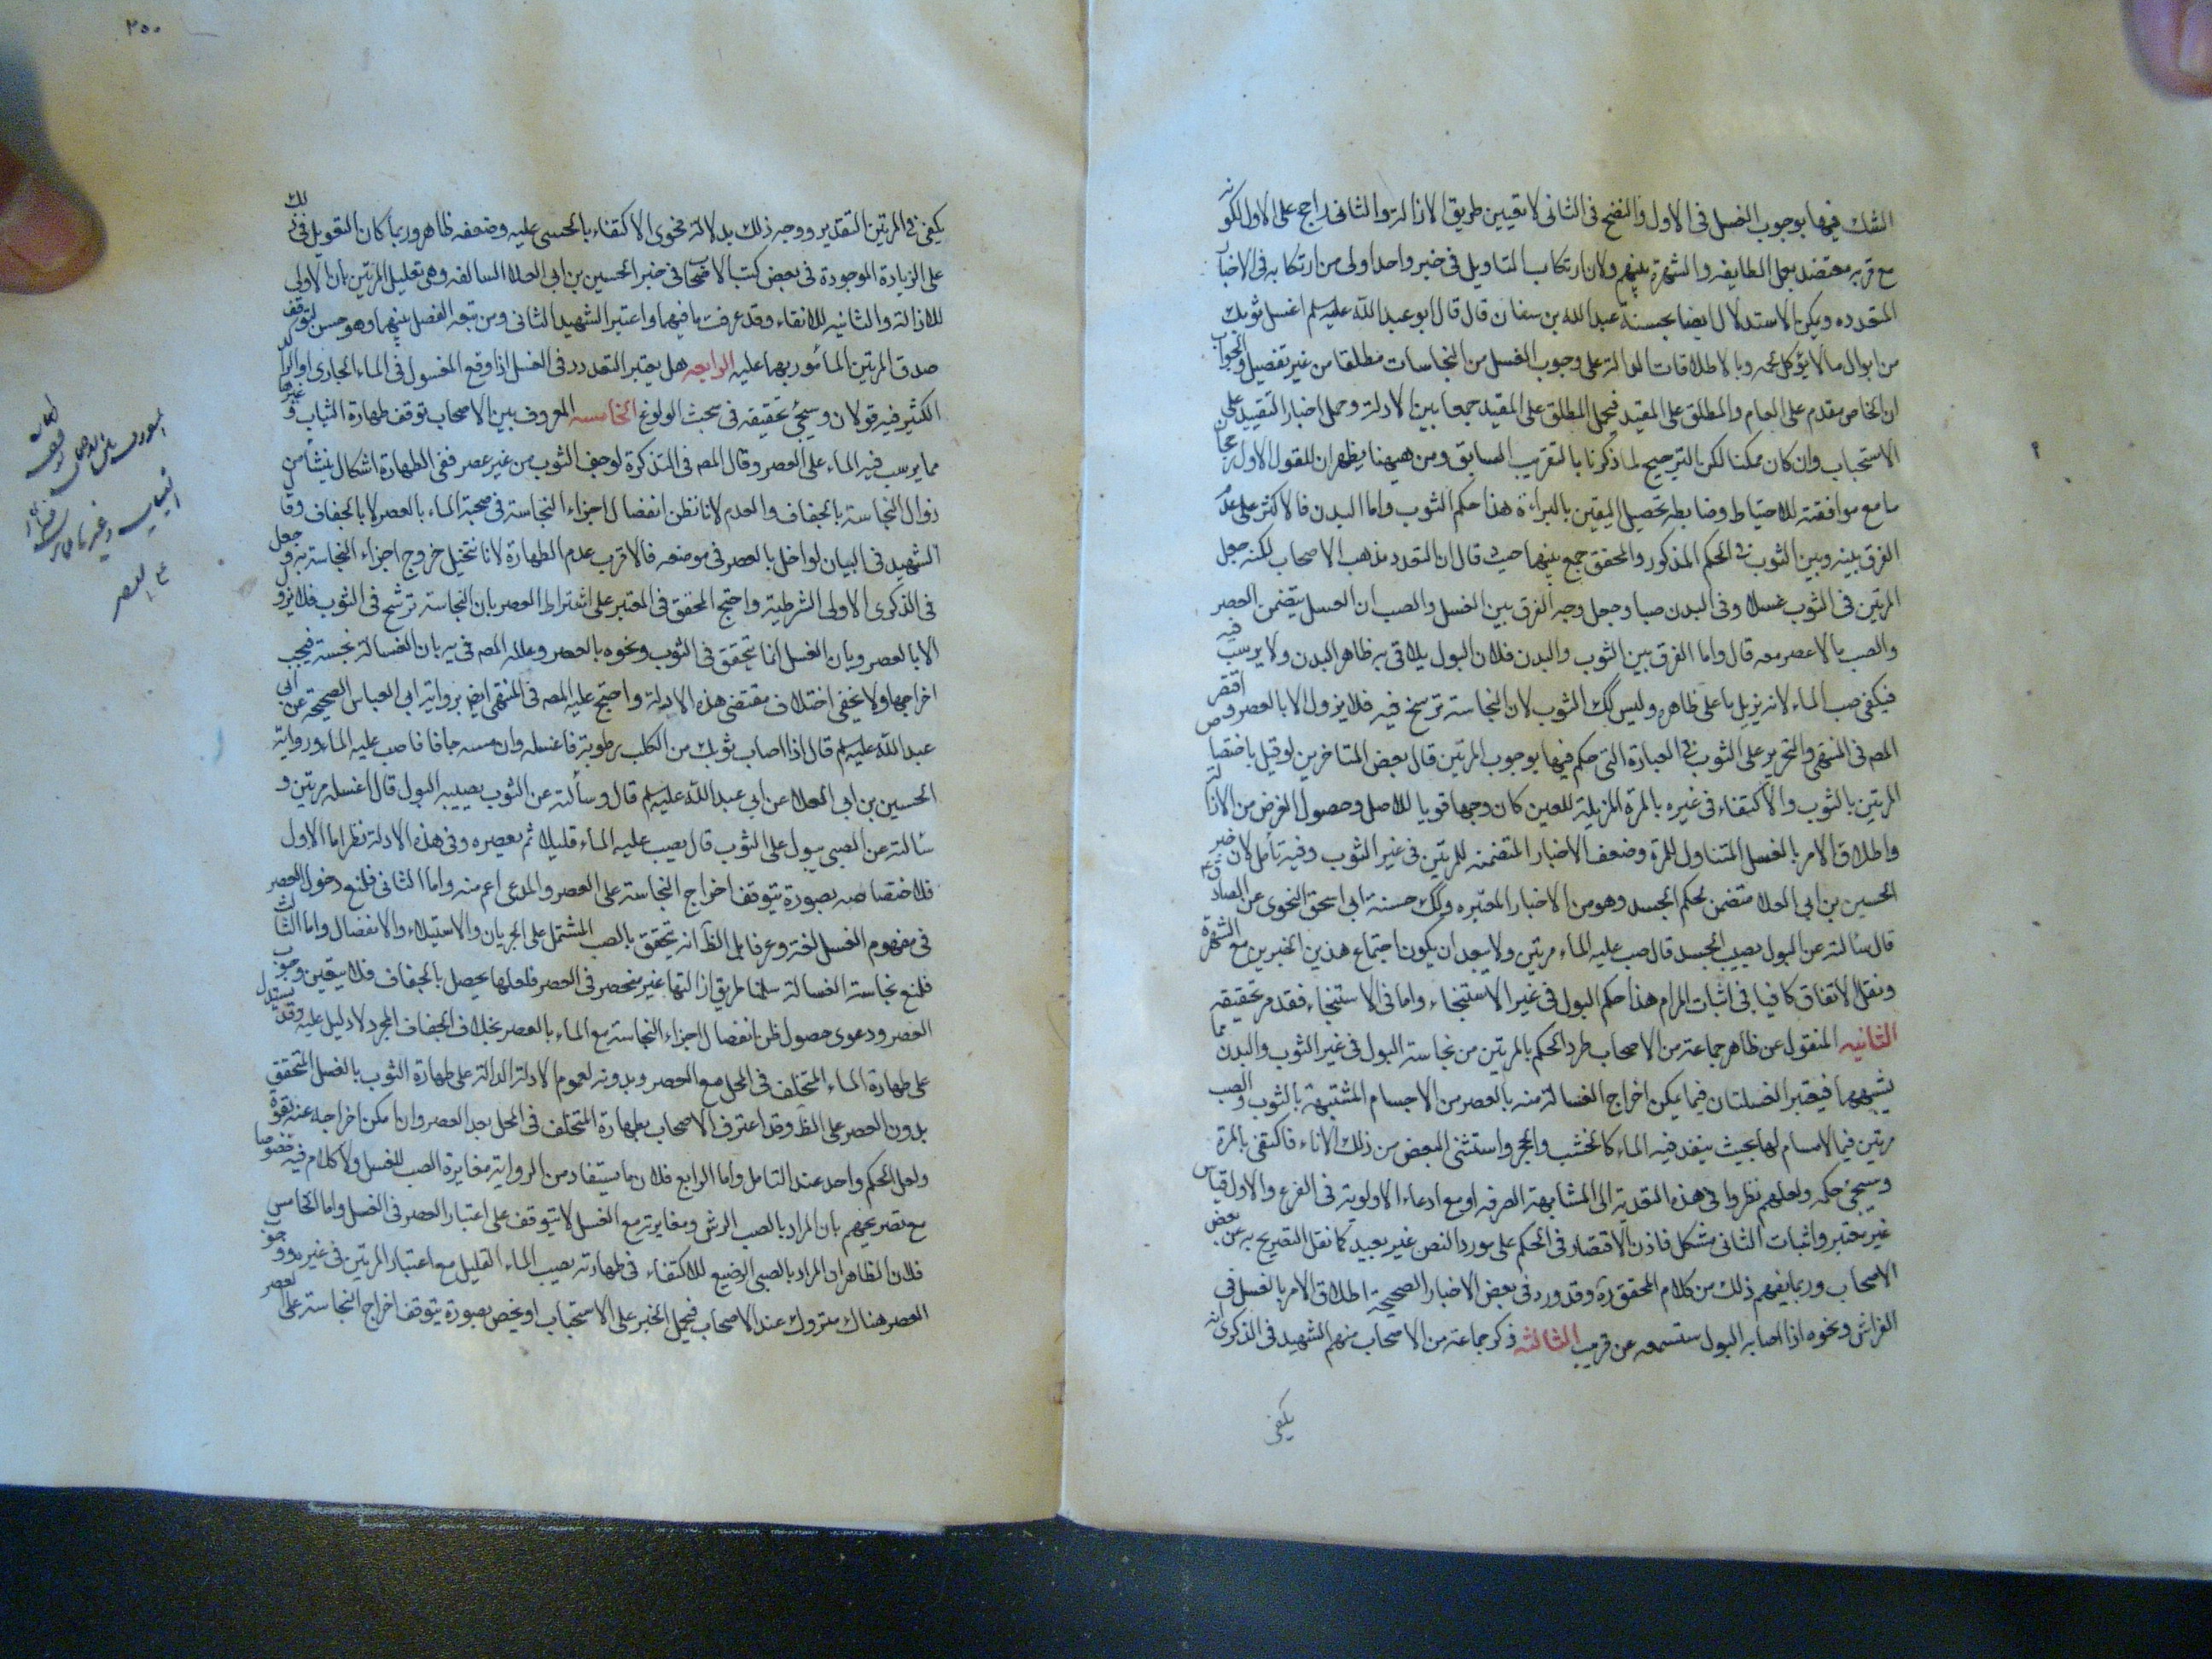 الشك فيها بوجوب الغسل فى الاول والنضح فى الثانى لا تعيين طريق الازالة والثانى راجح على الاول لكونه
مع قربه معتضد بعمل الطايفه والشهرة بينهم ولان ارتكاب التاويل فى خبر واحد اولى من ارتكابه فى الاخبار
المتعدده ويمكن الاستدلال ايضا بحسنة عبد الله بن سنان قال قال ابو عبد الله عليه سلم اغسل ثوبك
من ابوال ما لا يؤكل لحمه وبالاطلاقات الدالة على وجوب الغسل من النجاسات مطلقا من غير تفصيل والجواب
ان الخاص مقدم على العام والمطلق على المقيد فيحمل المطلق على المقيد جمعا بين الادلة وحمل اخبار التقييد على
الاستحباب وان كان ممكنا لكن الترجيح لما ذكرنا بالتقريب السابق ومن هيهنا يظهر ان للقول الاول رجحانا
ما مع موافقته للاحتياط وضابطه تحصيل اليقين بالبراءة هذا حكم الثوب واما البدن فالاكثر على عدم
الفرق بينه وبين الثوب فى الحكم المذكور والمحقق جمع بينهما حيث قال ان التعدد مذهب الاصحاب لكنه جعل
المرتين فى الثوب غسلا وفى البدن صبا وجعل وجه الفرق بين الغسل والصب ان الغسل يتضمن العصر
والصب بالا عصر معه قال واما الفرق بين الثوب والبدن فلان البول يلاقى به ظاهر البدن ولا يرسب فيه
فيكفى صب الماء لانه يزيل ما على ظاهره وليس كك الثوب لان النجاسة ترسخ فيه فلا يزول الا بالعصر واقتصر
المص فى المنتهى والتحرير على الثوب فى العبارة التى حكم فيها بوجوب المرتين قال بعض المتاخرين لو قيل باختصاص
المرتين بالثوب والاكتفاء فى غيره بالمرة المزيلة للعين كان وجها قويا للاصل وحصول الغرض من الازالة
واطلاق الامر بالغسل المتناول للمرة وضعف الاخبار المتضمنه للمرتين فى غير الثوب وفيه تأمل لان خبر
الحسين بن ابى العلا متضمن لحكم الجسد وهو من الاخبار المعتبره وكك حسنة ابى اسحق النحوى عن الصادق ع
قال سالته عن البول يصيب الجسد قال صب عليه الماء مرتين ولا يبعد ان يكون اجتماع هذين الخبرين مع الشهرة
ونقل الاتفاق كافيا فى اثبات المرام هذا حكم البول فى غير الاستنجاء واما فى الاستنجاء فقد مر تحقيقه
الثانيه المنقول عن ظاهر جماعة من الاصحاب طرد الحكم بالمرتين من نجاسة البول فى غير الثوب والبدن مما
يشبههما فيعتبر الغسلتان فيما يمكن اخراج الغسالة منه بالعصر من الاجسام المشتبهة بالثوب والصب
مرتين فيما لا مسام لها بحيث ينفذ فيه الماء كالخشب والحجر واستثنى البعض من ذلك الاناء فاكتفى بالمرة
وسيجئ حكمه ولعلهم نظروا فى هذه التعدية الى المشابهة الصرفه او مع ادعاء الاولوية فى الفرع والاول قياس
غير معتبر واثبات الثانى مشكل فاذن الاقتصار فى الحكم على مورد النص غير بعيد كما نقل التصريح به عن بعض
الاصحاب وربما يفهم ذلك من كلام المحقق ره وقد ورد فى بعض الاخبار الصحيحة اطلاق الامر بالغسل فى
الفراش ونحوه اذا اصابه البول ستسمعه عن قريب الثالثه ذكر جماعة من الاصحاب منهم الشهيد فى الذكرى انه
يكفى
٢٥٠
يكفى فى المرتين التقدير ووجه ذلك بدلالة فحوى الاكتفاء بالحسى عليه وضعفه ظاهر وربما كان التعويل فى ذلك
على الزيادة الموجودة فى بعض كتب الاصحاب فى خبر الحسين بن ابى العلا السالفه وهى تعليل المرتين بان الاولى
للازالة والثانيه للانقاء وقد عرفت ما فيهما واعتبر الشهيد الثانى ومن تبعه الفصل بينهما وهو حسن لتوقف
صدق المرتين المأمور بهما عليه الرابعه هل يعتبر التعدد فى الغسل اذا وقع المغسول فى الماء الجارى او الراكد
الكثير فيه قولان وسيجئ تحقيقه فى مبحث الولوغ الخامسه المعروف بين الاصحاب توقف طهارة الثياب وغيرها
مما يرسب فيه الماء على العصر وقال المص فى التذكرة لو جف الثوب من غير عصر ففى الطهارة اشكال ينشأ من
زوال النجاسة بالجفاف والعدم لانا نظن انفصال اجزاء النجاسة فى صحبة الماء بالعصر لا بالجفاف وقال
الشهيد فى البيان لو اخل بالعصر فى موضعه فالاقرب عدم الطهارة لانا نتخيل خروج اجزاء النجاسة به وجعل
فى الذكرى الاولى الشرطية واحتج المحقق فى المعتبر على اشتراط العصر بان النجاسة ترشح فى الثوب فلا يزول
الا بالعصر وبان الغسل انما يتحقق فى الثوب ونحوه بالعصر وعلله المص فى يه بان الغسالة نجسة فيجب
اخراجها ولا يخفى اختلاف مقتضى هذه الادلة واحتج عليه المص فى المنتهى ايض برواية ابى العباس الصحيحة عن ابى
عبد الله عليه سلم قال اذا اصاب ثوبك من الكلب رطوبة فاغسله وان مسه جافا فاصب عليه الماء ورواية
الحسين بن ابى العلا عن ابى عبد الله عليه سلم قال وسألته عن الثوب يصيبه البول قال اغسله مرتين و
سألته عن الصبى يبول على الثوب قال يصب عليه الماء قليلا ثم يعصره وفى هذه الادلة نظر اما الاول
فلاختصاصه بصورة يتوقف اخراج النجاسة على العصر والمدعى اعم منه واما الثانى فلمنع دخول العصر
فى مفهوم الغسل لغة وعرفا بل الظ انه يتحقق بالصب المشتمل على الجريان والاستيلاء والانفصال واما الثالث
فلمنع نجاسة الغسالة سلمنا طريق ازالتها غير منحصر فى العصر فلعلها يحصل بالجفاف فلا يتعين وجوب
العصر ودعوى حصول ظن انفصال اجزاء النجاسة مع الماء بالعصر بخلاف الجفاف المجرد لا دليل عليه وقد يستدل
على طهارة الماء المتخلف فى المحل مع العصر وبدونه لعموم الادلة الدالة على طهارة الثوب بالغسل المتحقق
بدون العصر على الظ وقد اعترف الاصحاب بطهارة المتخلف فى المحل بعد العصر وان امكن اخراجه عنه بقوة
ولعل الحكم واحد عند التامل واما الرابع فلان ما يستفاد من الرواية مغايرة الصب للغسل ولا كلام فيه خصوصا
مع تصريحهم بان المراد بالصب الرش ومغايرته مع الغسل لا يتوقف على اعتبار العصر فى الغسل واما الخامس
فلان الظاهر ان المراد بالصبى الرضيع للاكتفاء فى طهارته بصب الماء القليل مع اعتبار المرتين فى غيره ووجوب
العصر هناك متروك عند الاصحاب فيحمل الخبر على الاستحباب او يخص بصورة يتوقف اخراج النجاسة على العصر